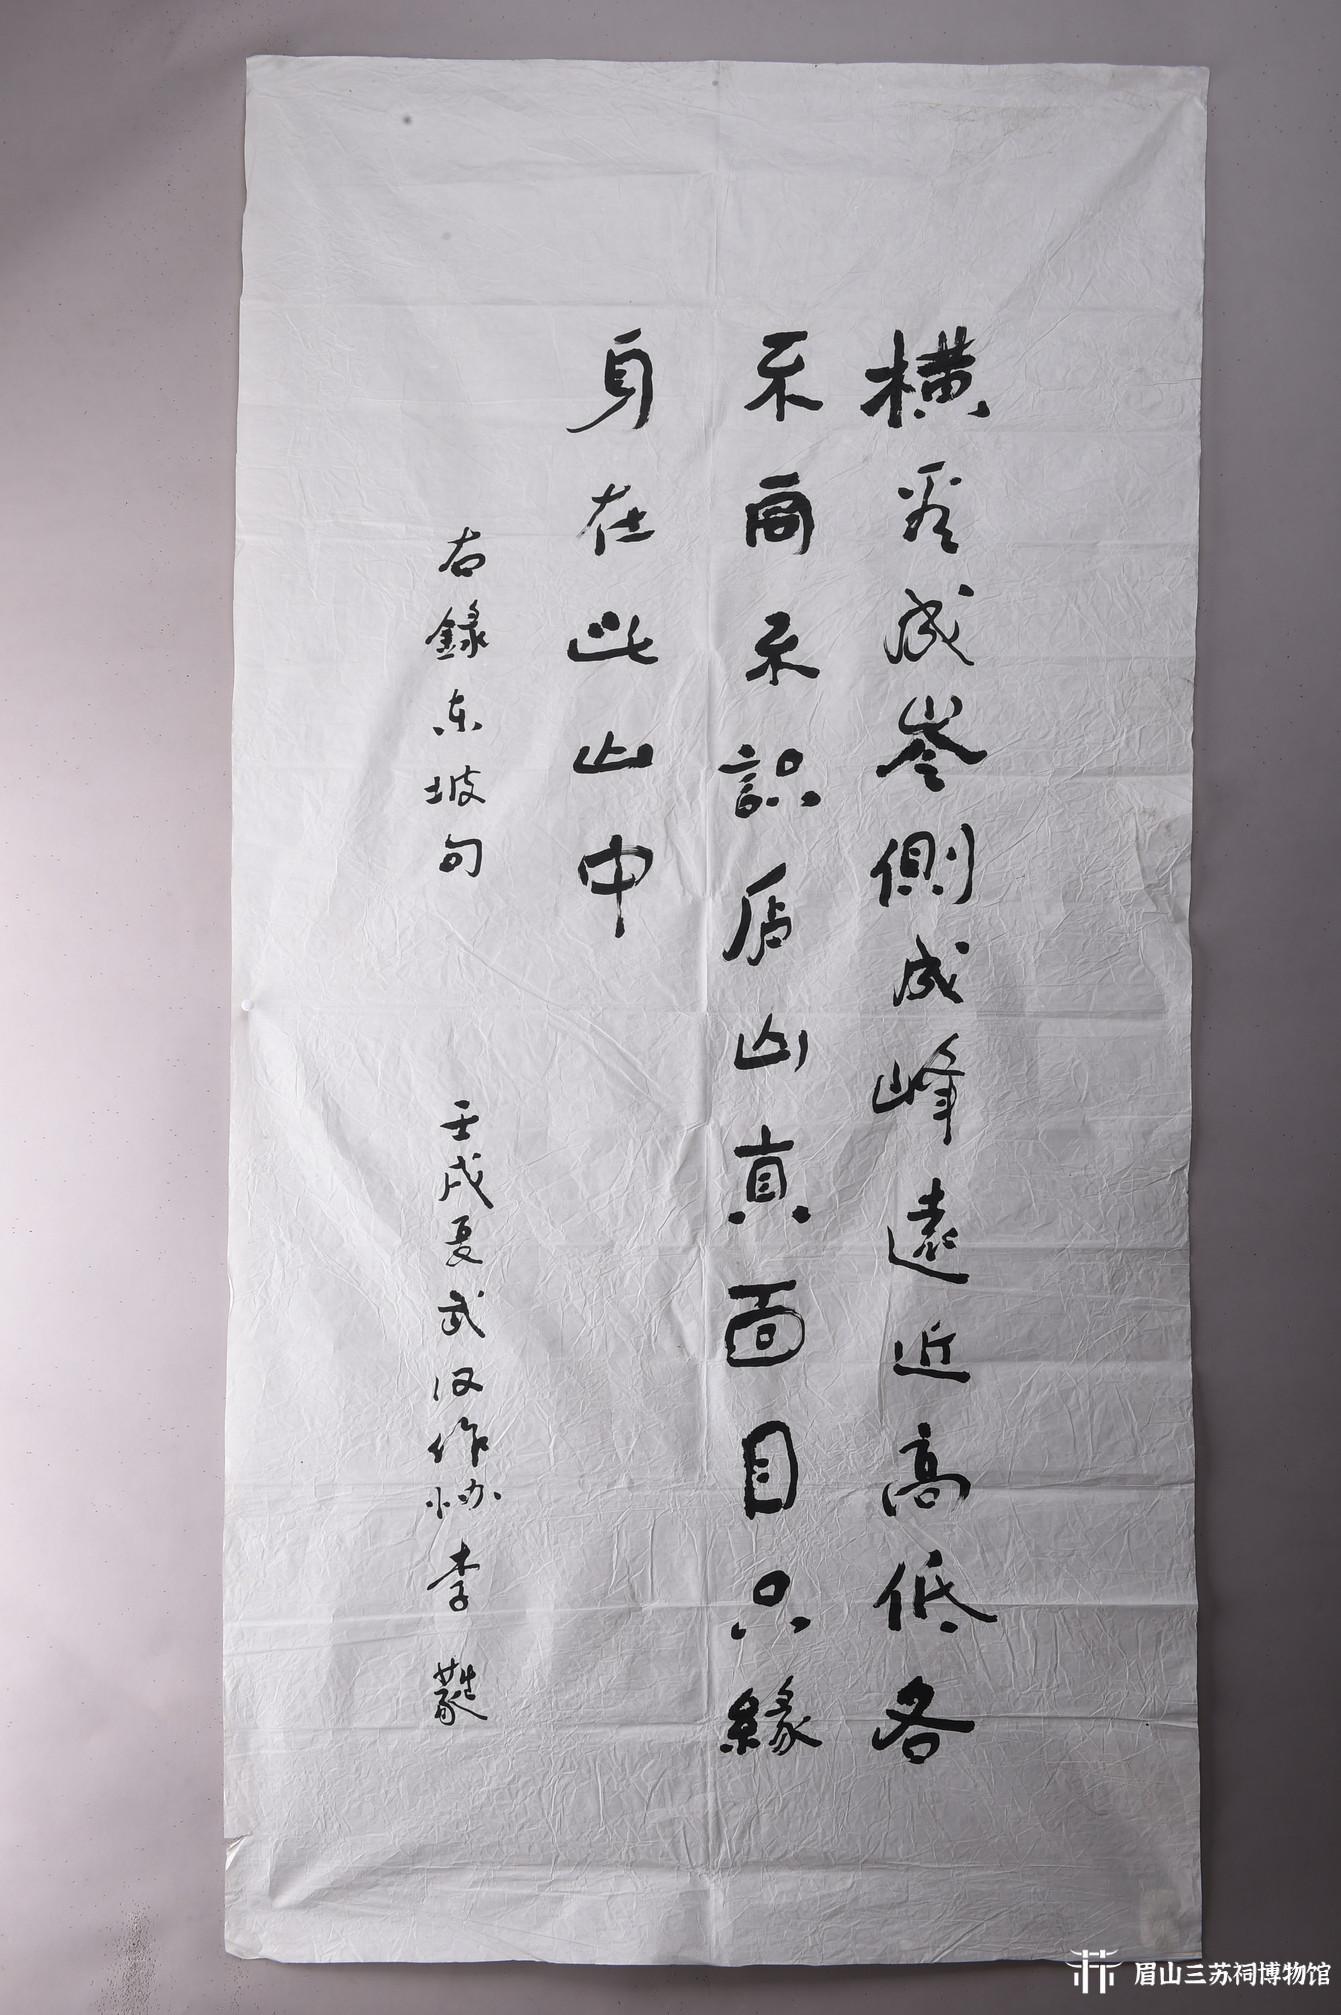 横看成岺側成峰遠近高低各
不同不識庐山真面目只緣
身在此山中
右録东坡句 壬戌夏武汉作协李蕤
眉山三苏祠博物馆